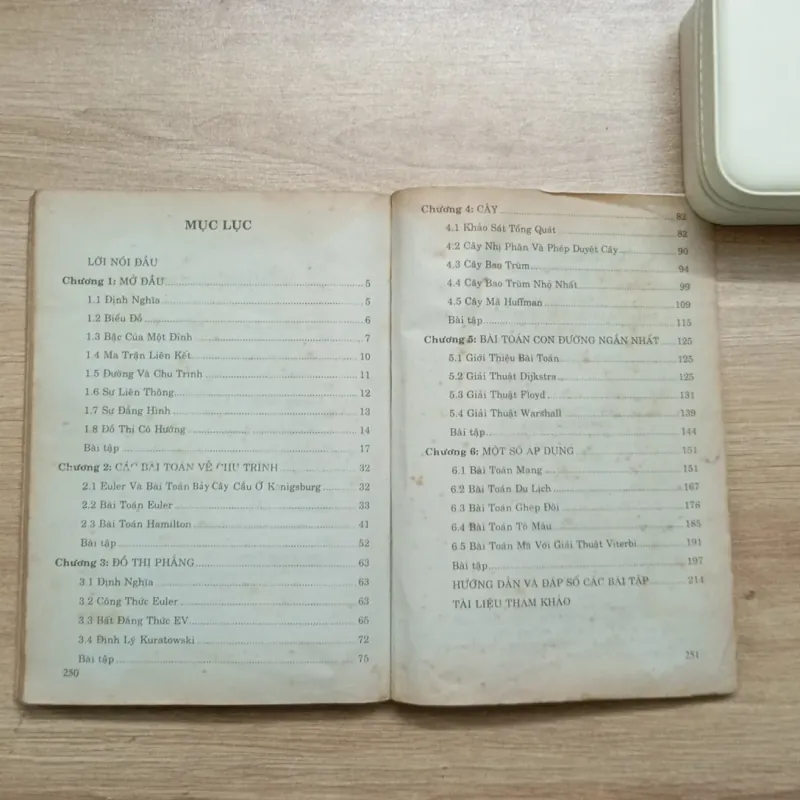 MỤC LỤC
LỜI NÓI ĐẦU
Chương 1: MỞ ĐẦU 5
1.1 Định Nghĩa 5
1.2 Biểu Đồ 6
1.3 Bậc Của Một Đỉnh 7
1.4 Ma Trận Liên Kết 10
1.5 Đường Và Chu Trình 11
1.6 Sự Liên Thông 12
1.7 Sự Đẳng Hình 13
1.8 Đồ Thị Có Hướng 14
Bài tập 17
Chương 2: CÁC BÀI TOÁN VỀ CHU TRÌNH 32
2.1 Euler Và Bài Toán Bảy Cây Cầu Ở Konigsburg 32
2.2 Bài Toán Euler 33
2.3 Bài Toán Hamilton 41
Bài tập 52
Chương 3: ĐỒ THỊ PHẲNG 63
3.1 Định Nghĩa 63
3.2 Công Thức Euler 63
3.3 Bất Đẳng Thức EV 65
3.4 Định Lý Kuratowski 72
Bài tập 75
250
Chương 4: CÂY 82
4.1 Khảo Sát Tổng Quát 82
4.2 Cây Nhị Phân Và Phép Duyệt Cây 90
4.3 Cây Bao Trùm 94
4.4 Cây Bao Trùm Nhỏ Nhất 99
4.5 Cây Mã Huffman 109
Bài tập 115
Chương 5: BÀI TOÁN CON ĐƯỜNG NGẮN NHẤT 125
5.1 Giới Thiệu Bài Toán 125
5.2 Giải Thuật Dijkstra 125
5.3 Giải Thuật Floyd 131
5.4 Giải Thuật Warshall 139
Bài tập 144
Chương 6: MỘT SỐ ÁP DỤNG 151
6.1 Bài Toán Mạng 151
6.2 Bài Toán Du Lịch 167
6.3 Bài Toán Ghép Đôi 176
6.4 Bài Toán Tô Màu 185
6.5 Bài Toán Mã Với Giải Thuật Viterbi 191
Bài tập 197
HƯỚNG DẪN VÀ ĐÁP SỐ CÁC BÀI TẬP 214
TÀI LIỆU THAM KHẢO
251